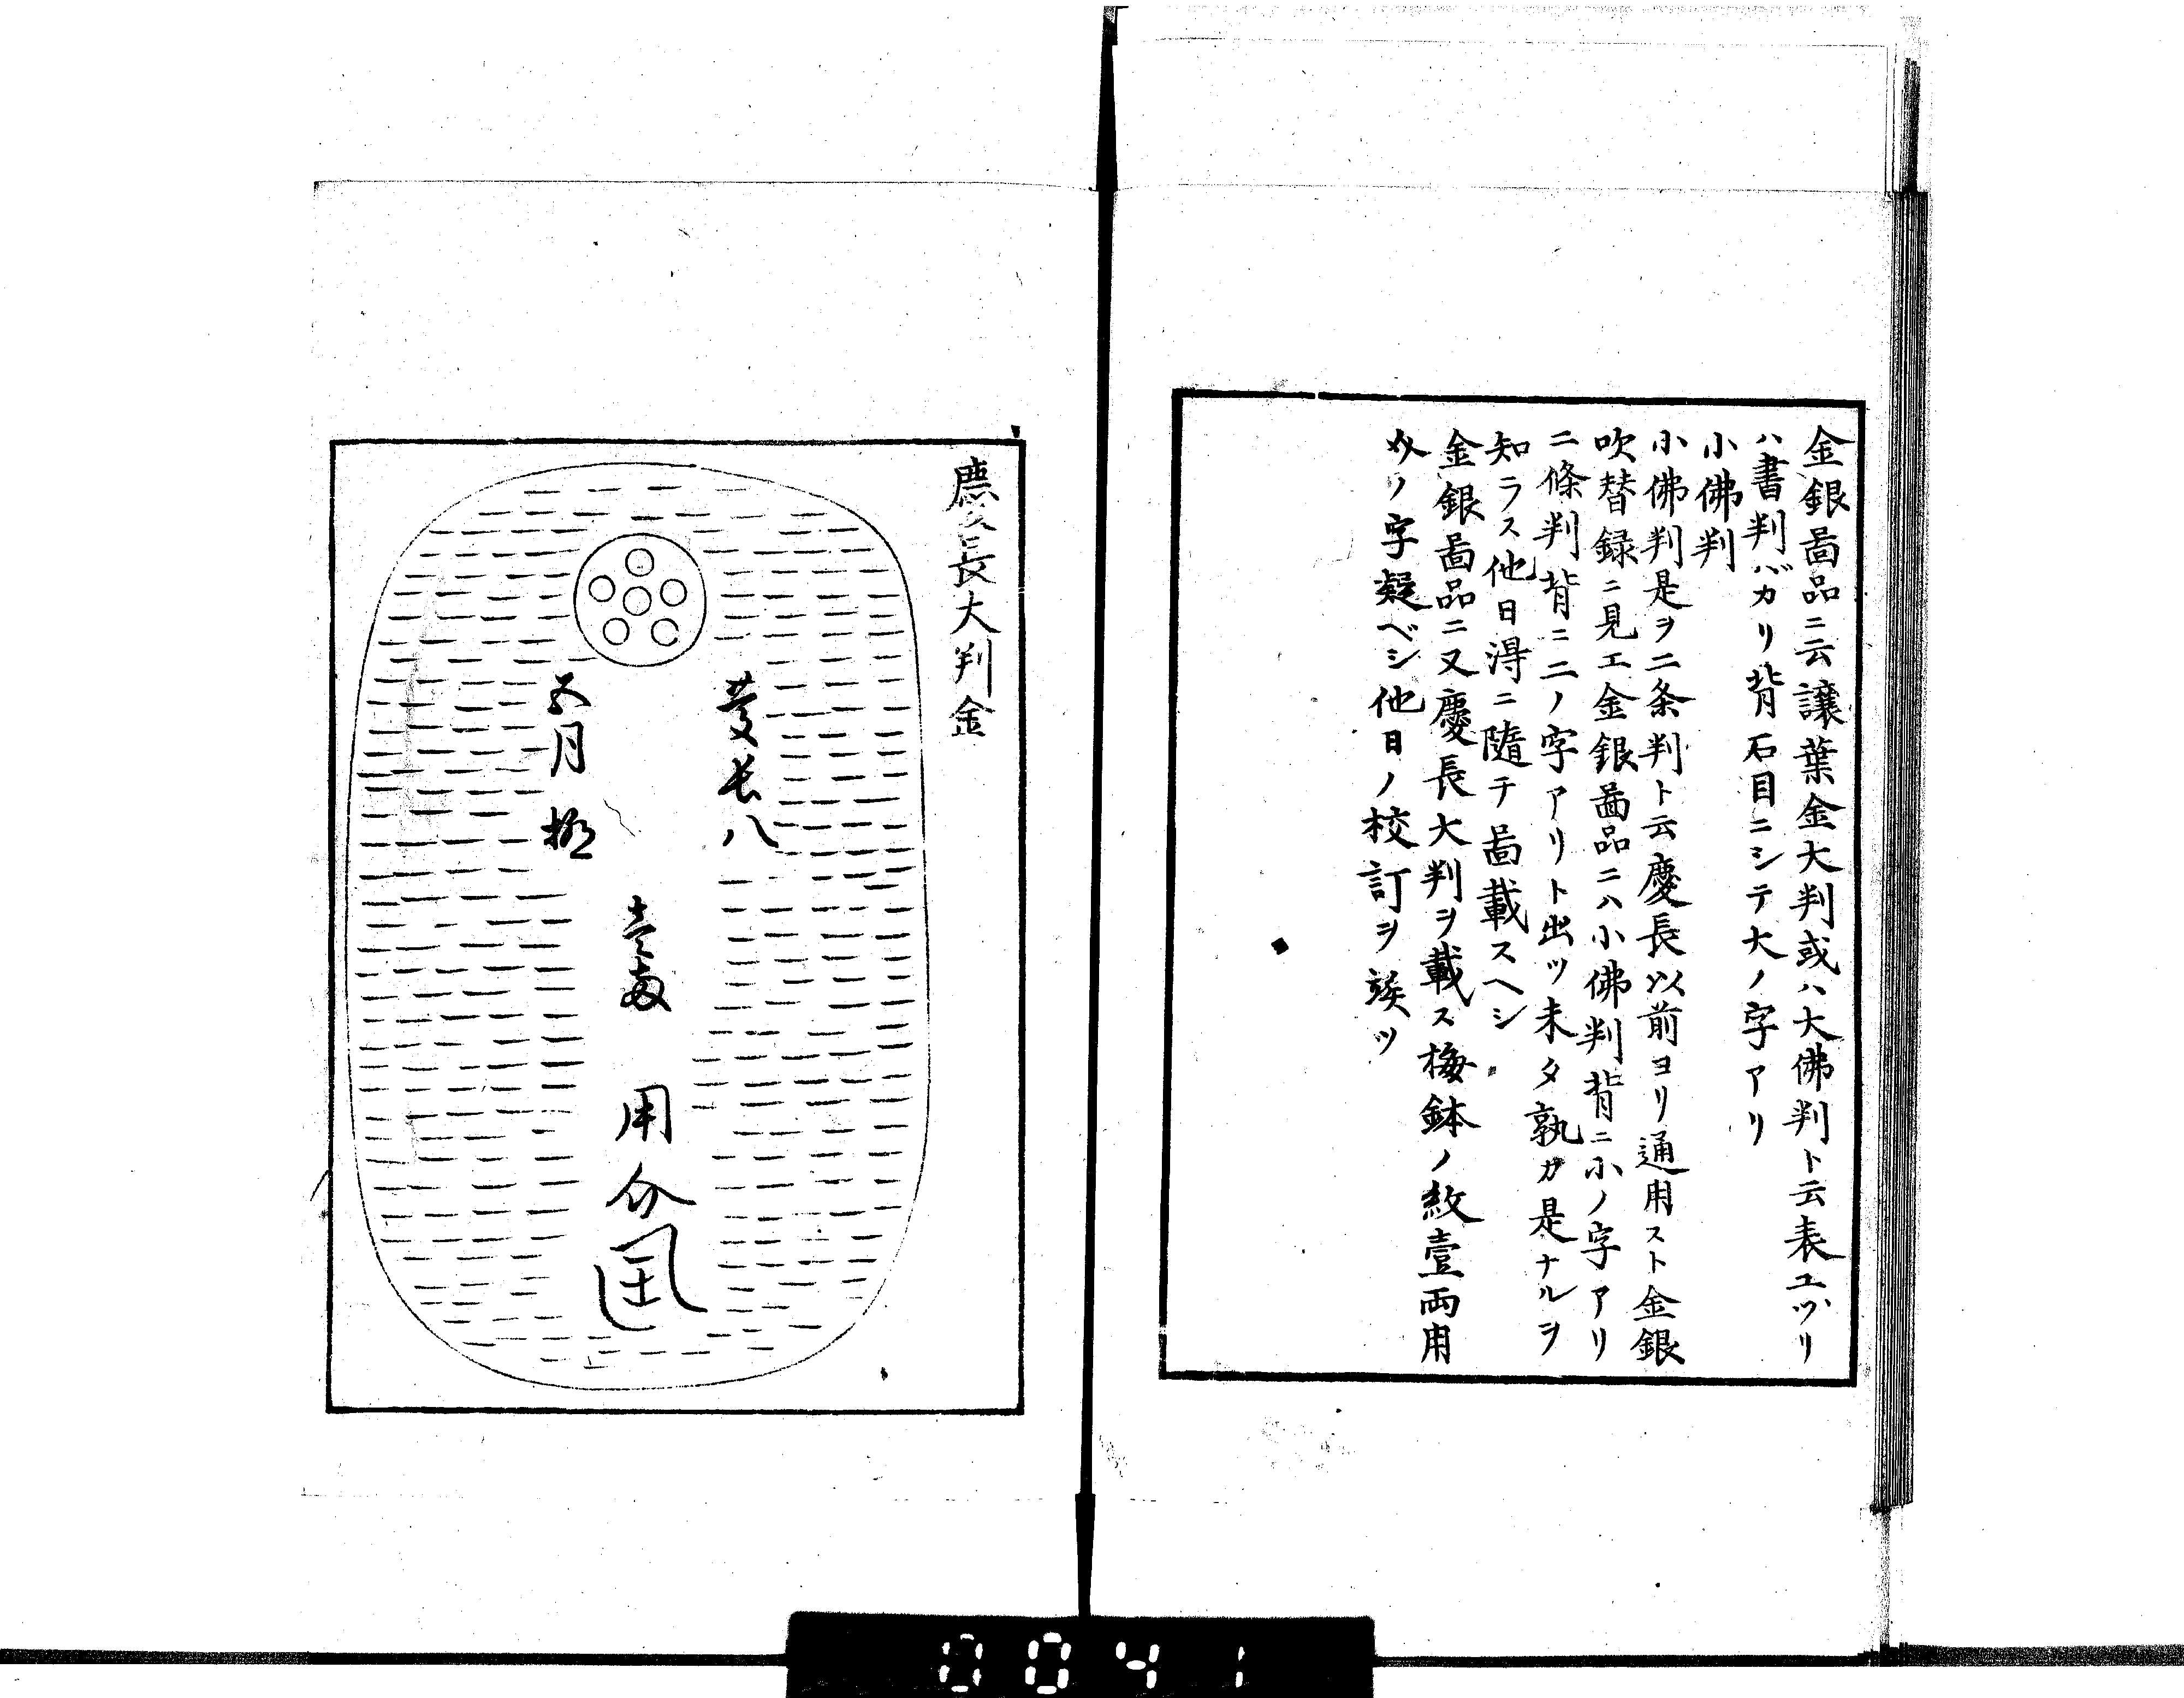 金銀啚品ニ云讓葉金大判或ハ大佛判ト云表ユヅリ
ハ書判バカリ背石目ニシテ大ノ字アリ
小佛判
小佛判是ヲ二条判ト云慶長以前ヨリ通用スト金銀
吹替録ニ見エ金銀啚品ニハ小佛判背ニ小ノ字アリ
二條判背ニ二ノ字アリト出ツ未タ孰カ是ナルヲ
知ラス他日淂ニ隨テ啚載スヘシ
金銀啚品ニ又慶長大判ヲ載ス梅鉢ノ紋壹両用
ノ字疑ベシ他日ノ校訂ヲ竢ツ
慶長大判金
慶長八
五月
壹両
用介
0041